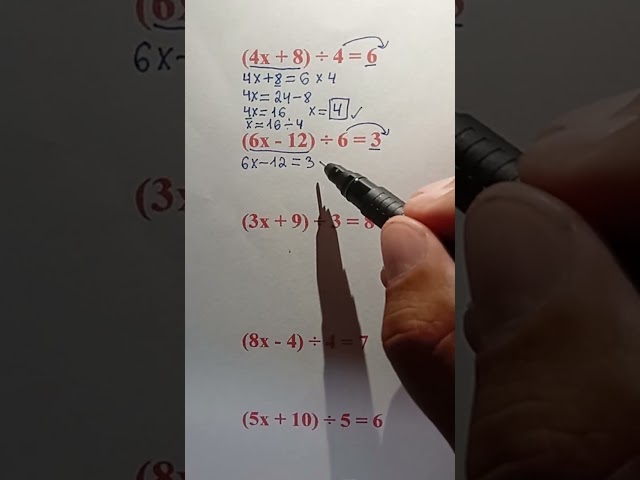 (4x + 8) ÷ 4 = 6
4x+8 = 6 × 4
4x = 24-8
4x = 16 x = 4 ✓
x = 16 ÷ 4
(6x - 12) ÷ 6 = 3
6x-12 = 3
(3x + 9) ÷ 3 = 8
(8x - 4) ÷ 4 = 7
(5x + 10) ÷ 5 = 6